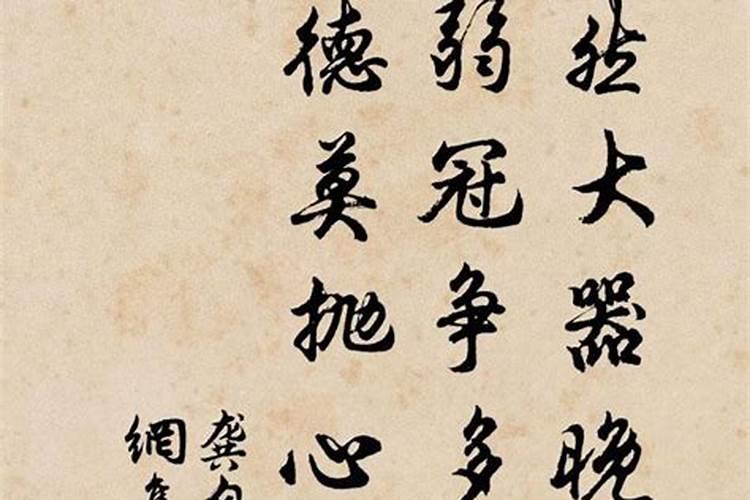 然大器晚
弱冠争多
德莫抛心
龚自
網